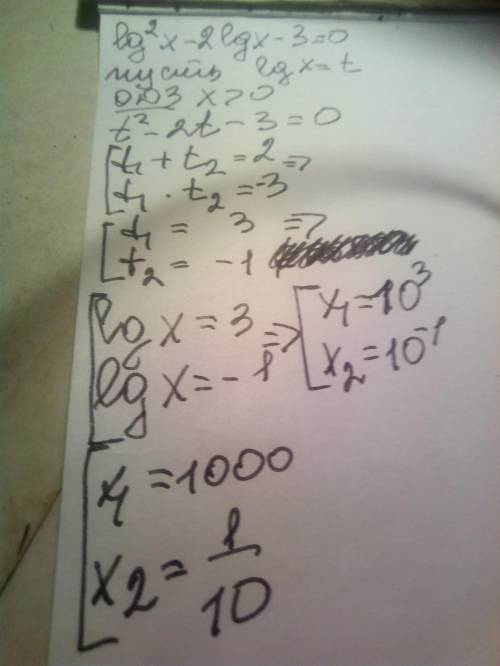 lg²x - 2lgx - 3 = 0
пусть lgx = t
ОДЗ x > 0
t² - 2t - 3 = 0
[t₁ + t₂ = 2 =>
[t₁ · t₂ = -3
[t₁ = 3 =>
[t₂ = -1
[lg x = 3 => [x₁ = 10³
[lg x = -1 [x₂ = 10⁻¹
[x₁ = 1000
[x₂ = 1/10